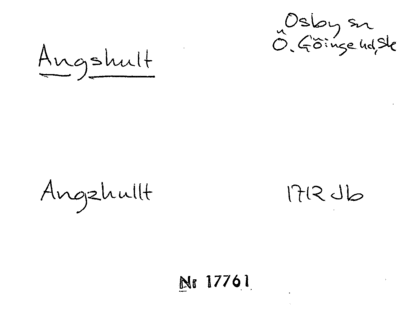 Osby sn
Angshult
Ö. Göinge hd, Sk
Angzhullt 1712 Jb
Nr 17761